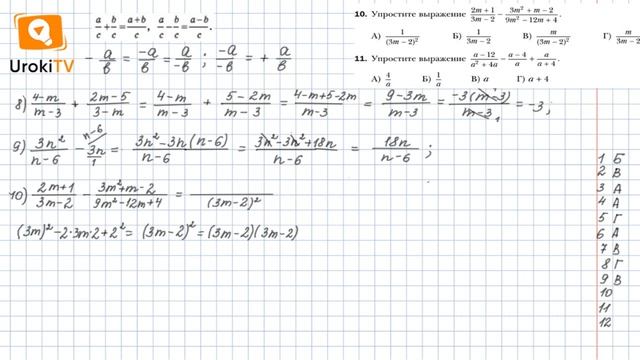 a/c + b/c = a+b/c, a/c - b/c = a-b/c.
UrokiTV
- a/b = -a/b = a/-b ; -a/-b = + a/b
10. Упростите выражение 2m + 1/3m − 2 − 3m² + m − 2/9m² − 12m + 4.
А) 1/(3m − 2)² Б) 1/3m − 2 В) m/(3m − 2)² Г) m/3m −
11. Упростите выражение a − 12/a² + 4a − a − 4/a + a/a + 4.
А) 4/a Б) 1/a В) a Г) a + 4
8) 4-m/m-3 + 2m-5/3-m = 4-m/m-3 + 5-2m/m-3 = 4-m+5-2m/m-3 = 9-3m/m-3 = -3(m-3)/m-3 = -3 ;
9) 3n²/n-6 - 3n/1 = 3n²-3n(n-6)/n-6 = 3n²-3n²+18n/n-6 = 18n/n-6 ;
n-6
10) 2m+1/3m-2 - 3m²+m-2/9m²-12m+4 = /(3m-2)²
(3m)²-2·3m·2+2² = (3m-2)² = (3m-2)(3m-2)
1 Б
2 В
3 А
4 А
5 Г
6 А
7 В
8 Г
9 В
10
11
12